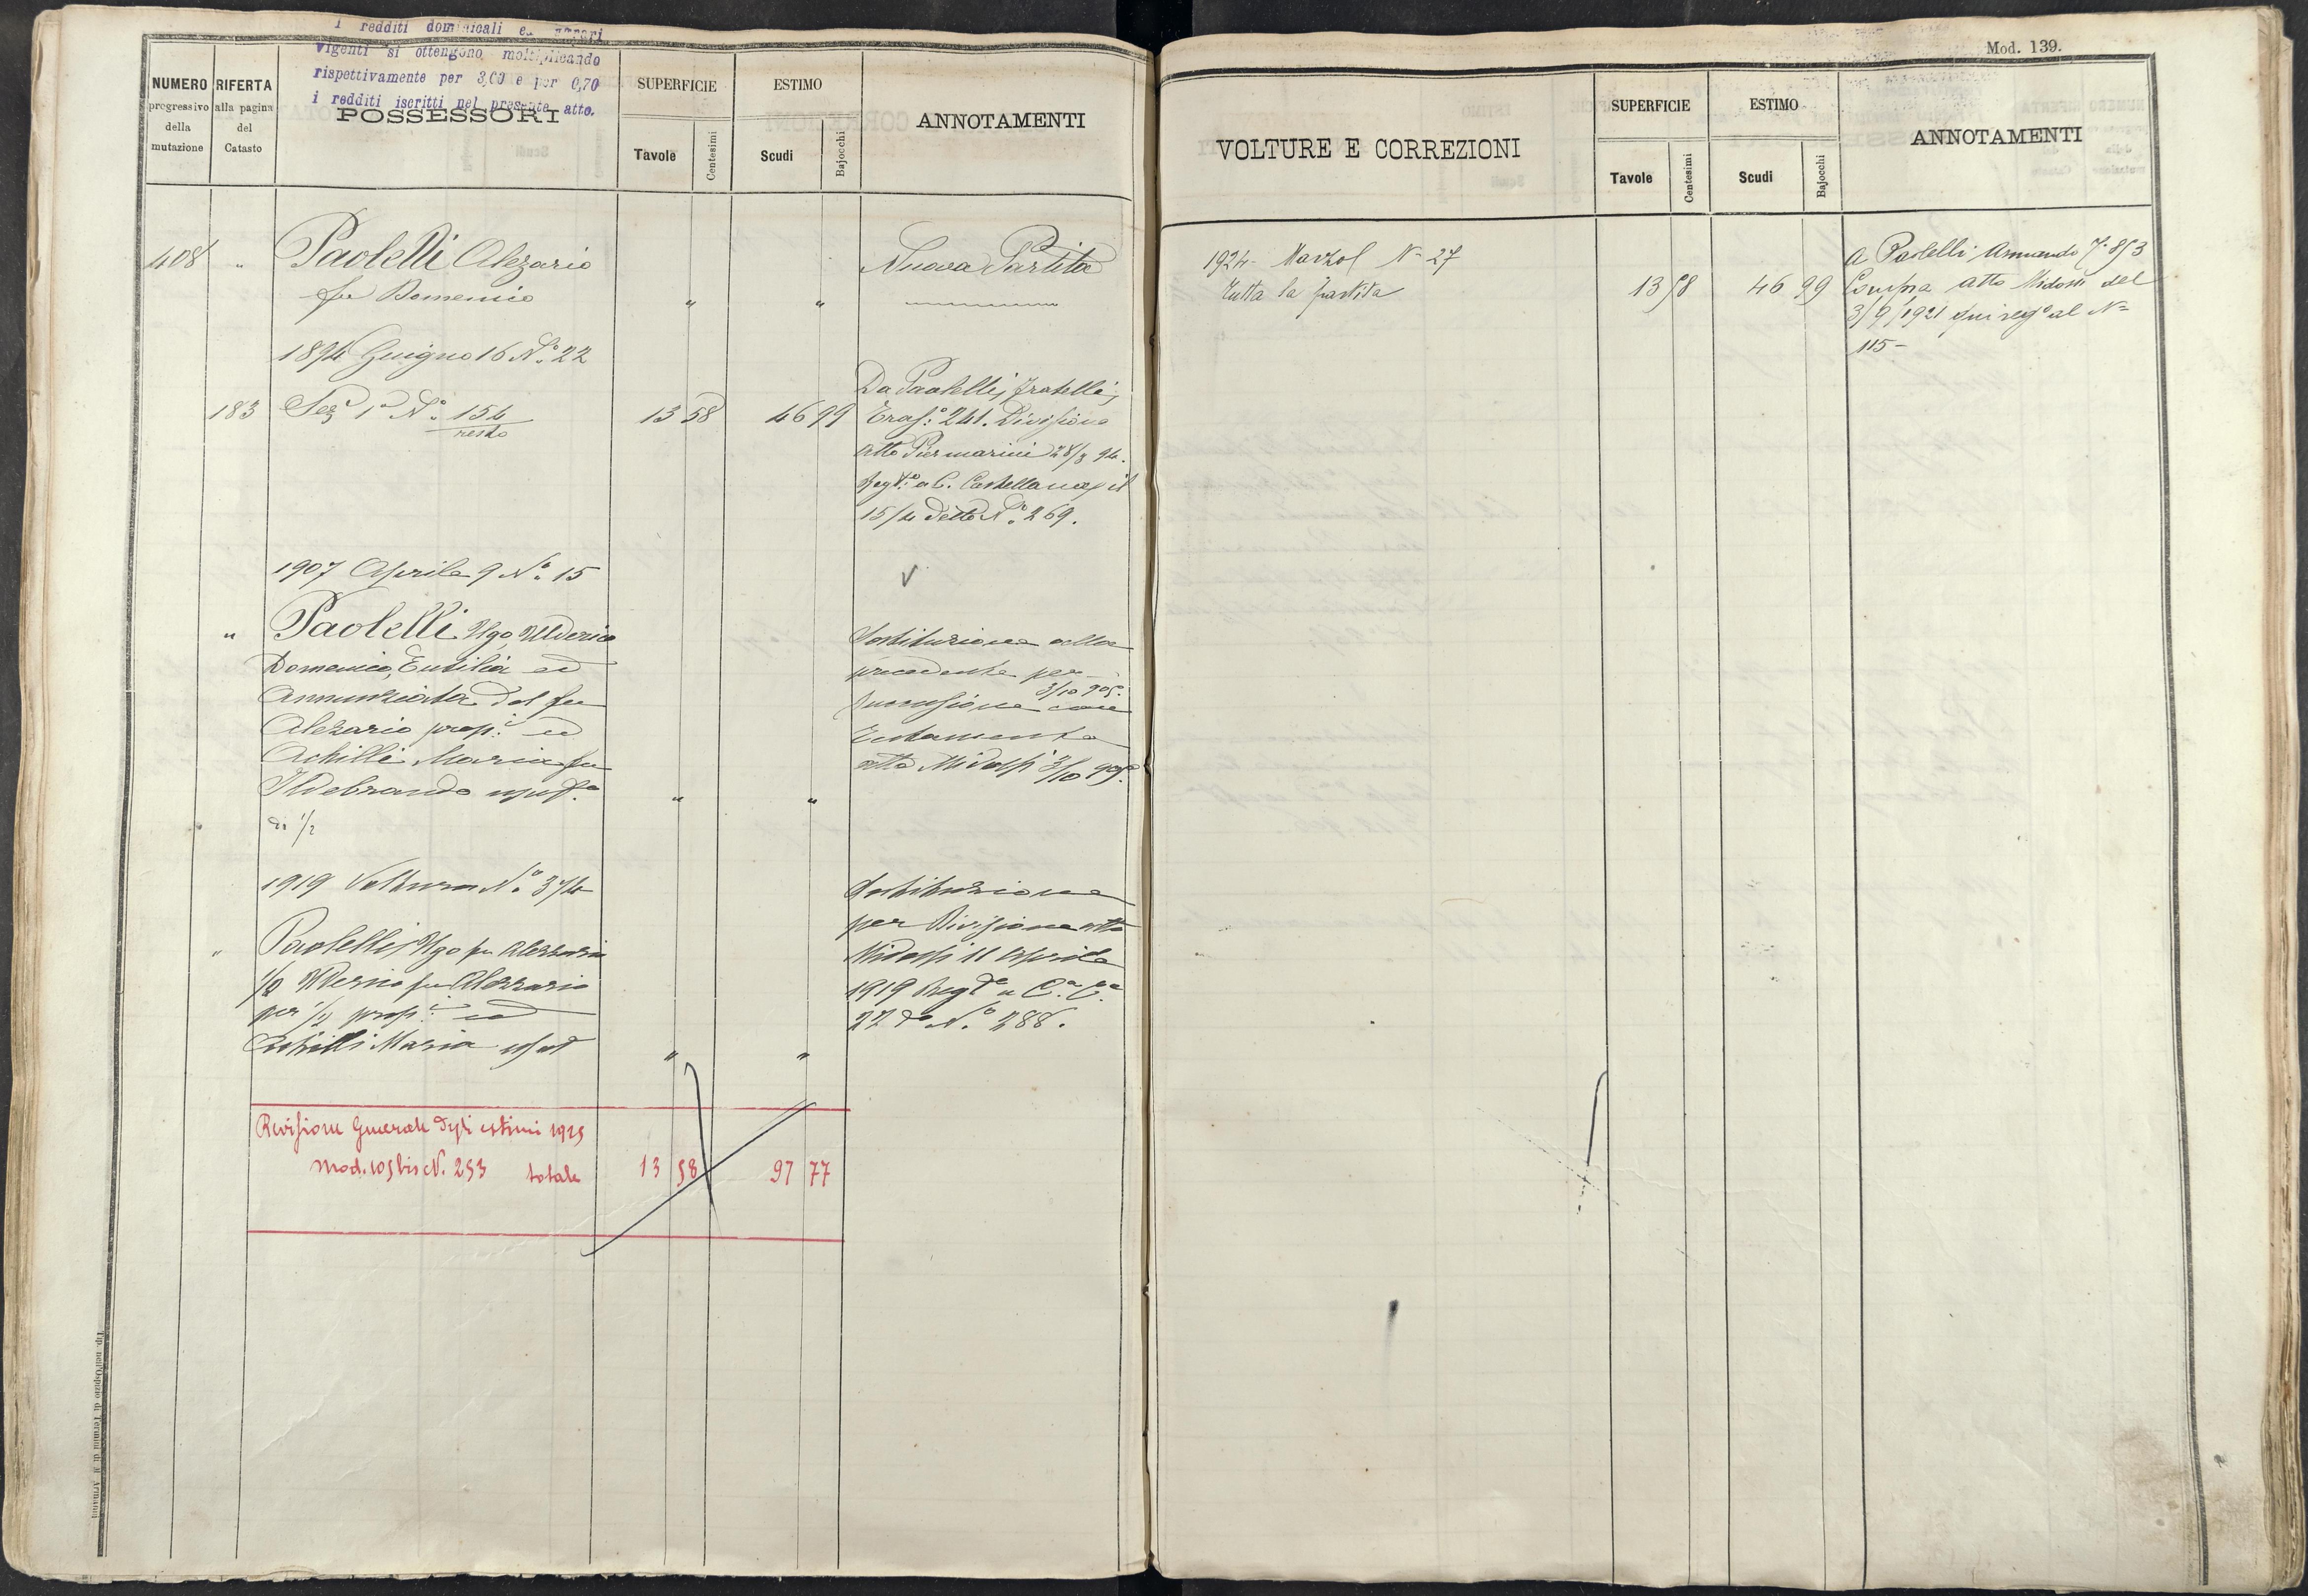 I redditi dominicali ed agrari
vigenti si ottengono moltiplicando
rispettivamente per 3,00 e per 0,70
i redditi iscritti nel presente atto.
NUMERO
progressivo
della
mutazione
RIFERTA
alla pagina
del
Catasto
POSSESSORI
SUPERFICIE
Tavole
Centesimi
ESTIMO
Scudi
Bajocchi
ANNOTAMENTI
408 " Paolelli Alezario Nuova Partita
fu Domenico " "
1894 Giugno 16 N.° 22
Da Paolelli, Fratelli,
183 Sez.e 1a N.° 154 13 58 46 99 Tras.° 241. Divisione
resto
atto Piermarini 28/3 94.
Reg.to a C. Castellana il
15/4 detto N.° 269.
1907 Aprile 9 N.° 15
" Paolelli Ugo, Ulderico
Domenico, Eutilia ed
Annunziata del fu
Alezario prop.i ed
Achilli Maria fu
Ildebrando usuf.a
di 1/2 " "
Sostituzione alla
precedente per
3/10 905.
successione con
Testamento
atto Midossi 3/10 905.
1919 Voltura N.° 374
" Paolelli Ugo fu Alezzario
1/2 Ulderico fu Alezzario
per 1/2 prop.i ed
Achilli Maria usuf " "
Sostituzione
per Divisione atto
Midossi 11 Aprile
1919 Reg.to a C.a C.a
22 do N.° 288.
Revisione Generale degli estimi 1925
Mod. 105 bis N. 253 totale 13 58 97 77
Tip. nell'Ospizio di Termini di N. Armanni
Mod. 139.
VOLTURE E CORREZIONI
SUPERFICIE
Tavole
Centesimi
ESTIMO
Scudi
Bajocchi
ANNOTAMENTI
1924 - Marzo N - 27
Tutta la partita 13 58 46 99
a Paolelli Armando 853
Compra atto Midossi del
3/9/1921 qui reg.o al N=
115 -